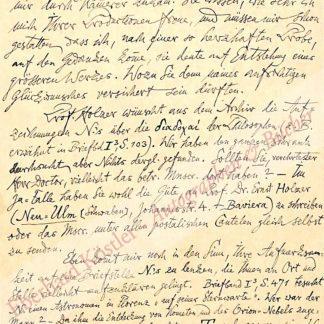 mir durch Kamerer zukam. Sie wissen, wie sehr ich
mich Ihrer Productionen freue, und müssen mir schon
gestatten dass ich, nach einer so herzhaften Probe,
auf den Gedanken kome, sie deute auf Entstehung eines
grösseren Werkes. Wozu Sie denn meines aufrichtigen
Glückwunsches versichert sein dürften.
Prof. Holzner wünscht aus dem Archive die Auf-
zeichnungen N's über die der Philosophen (
erwähnt in Briefbd I³ S. 103). Wir haben den ganzen
durchsucht aber Nichts dergl. gefunden. Sollten Sie, verehrtester
Herr Doctor, vielleicht das betr. Manuscr. dort haben? – Im
Ja-Falle haben Sie wohl die Güte Prof. Dr. Ernst Holzner
(Neu-Ulm (Schwaben), Johannisstr. 4. + Baviera) zu schreiben
oder das Mscr. unter allen postalischen Cautelen gleich selbst
zu senden.
Eben komt mir noch in den Sinn, Ihre Aufmerksam-
keit auf eine Briefstelle N's zu lenken, die Ihnen an Ort und
Stelle vielleicht aufzuklären gelingt. Briefband I³ S. 471 besucht
N einen Astronomen in Florenz "auf seiner Sternwarte". Wer war der
Mann? Da ihm die Entdeckung von Kometen und des Orion-Nebels zuge-